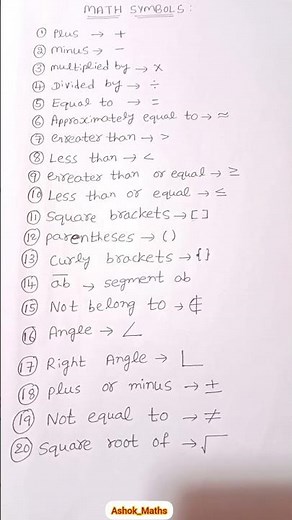 MATH SYMBOLS:
① Plus → +
② minus → −
③ multiplied by → ×
④ Divided by → ÷
⑤ Equal to → =
⑥ Approximately equal to → ≈
⑦ Greater than → >
⑧ Less than → <
⑨ Greater than or equal → ≥
⑩ Less than or equal → ≤
⑪ Square brackets → []
⑫ parentheses → ()
⑬ Curly brackets → {}
⑭ a̅b̅ → segment ab
⑮ Not belong to → ∉
⑯ Angle → ∠
⑰ Right Angle → ∟
⑱ plus or minus → ±
⑲ Not equal to → ≠
⑳ Square root of → √
Ashok_Maths